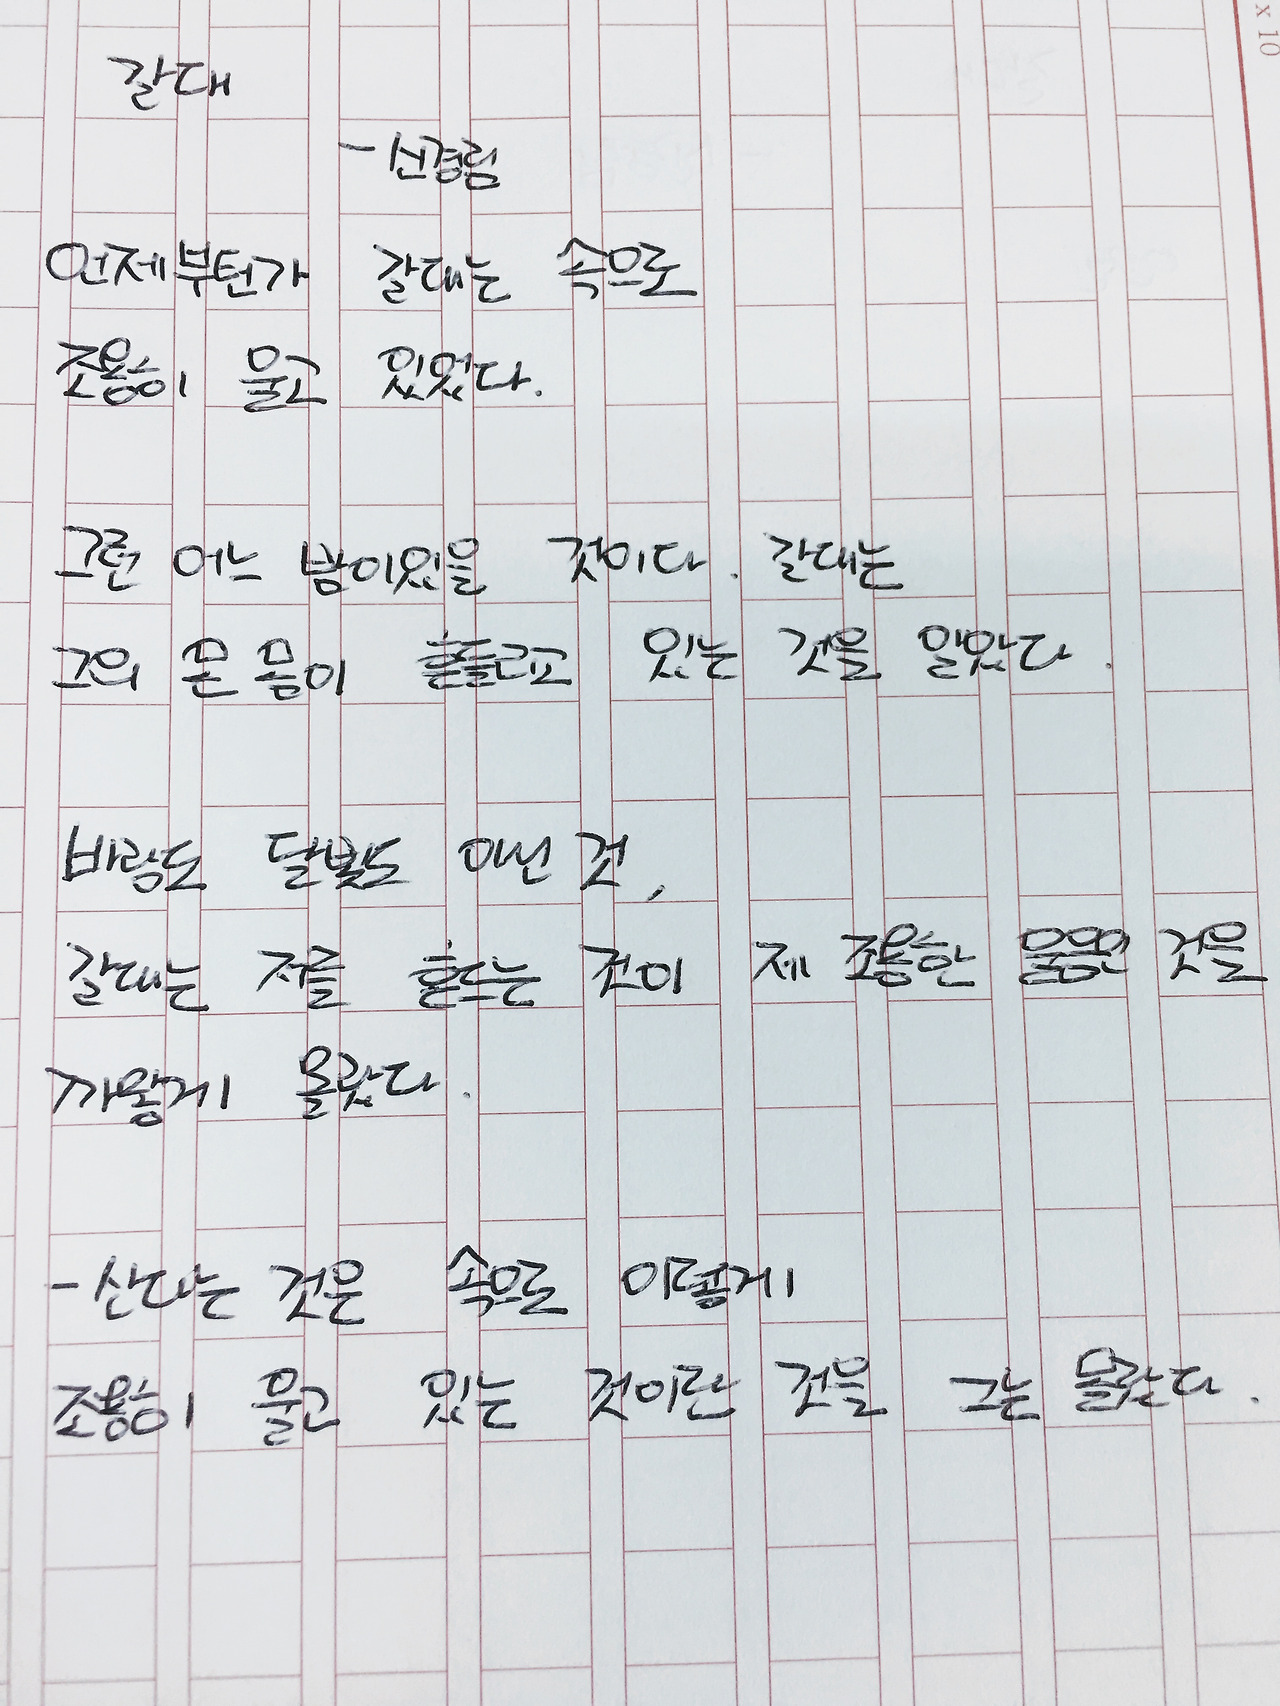 갈대
- 신경림
언제부턴가 갈대는 속으로
조용히 울고 있었다.
그런 어느 밤이었을 것이다. 갈대는
그의 온몸이 흔들리고 있는 것을 알았다.
바람도 달빛도 아닌 것,
갈대는 저를 흔드는 것이 제 조용한 울음인 것을
까맣게 몰랐다.
- 산다는 것은 속으로 이렇게
조용히 울고 있는 것이란 것을 그는 몰랐다.
x 10